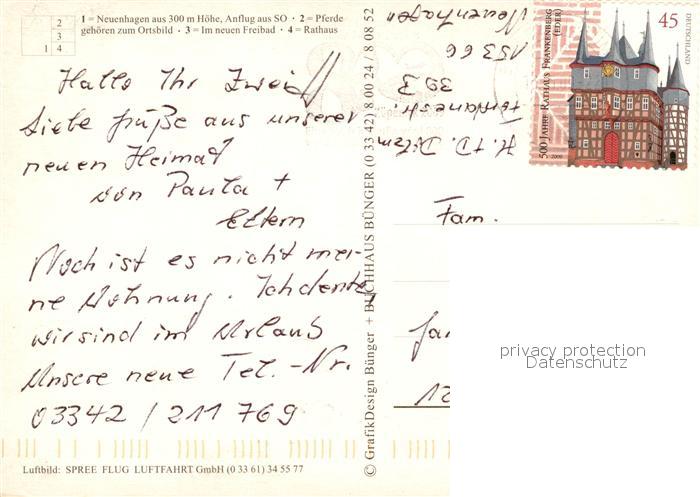 1 = Neuenhagen aus 300 m Höhe, Anflug aus SO · 2 = Pferde
gehören zum Ortsbild · 3 = Im neuen Freibad · 4 = Rathaus
2
3
1 4
Hallo Ihr Zwei!
Liebe Grüße aus unserer
neuen Heimat
von Paula +
Eltern
Noch ist es nicht mei-
ne Wohnung. Ich denke,
wir sind im Urlaub
Unsere neue Tel.-Nr.
03342 / 211 769
Luftbild: SPREE FLUG LUFTFAHRT GmbH (0 33 61) 34 55 77
© GrafikDesign Bünger + BUCHHAUS BÜNGER (0 33 42) 8 00 24 / 8 08 52
H. + D.
39 3
15366
Neuenhagen
500 JAHRE RATHAUS FRANKENBERG
(EDER)
45
DEUTSCHLAND
Fam.
privacy protection
Datenschutz